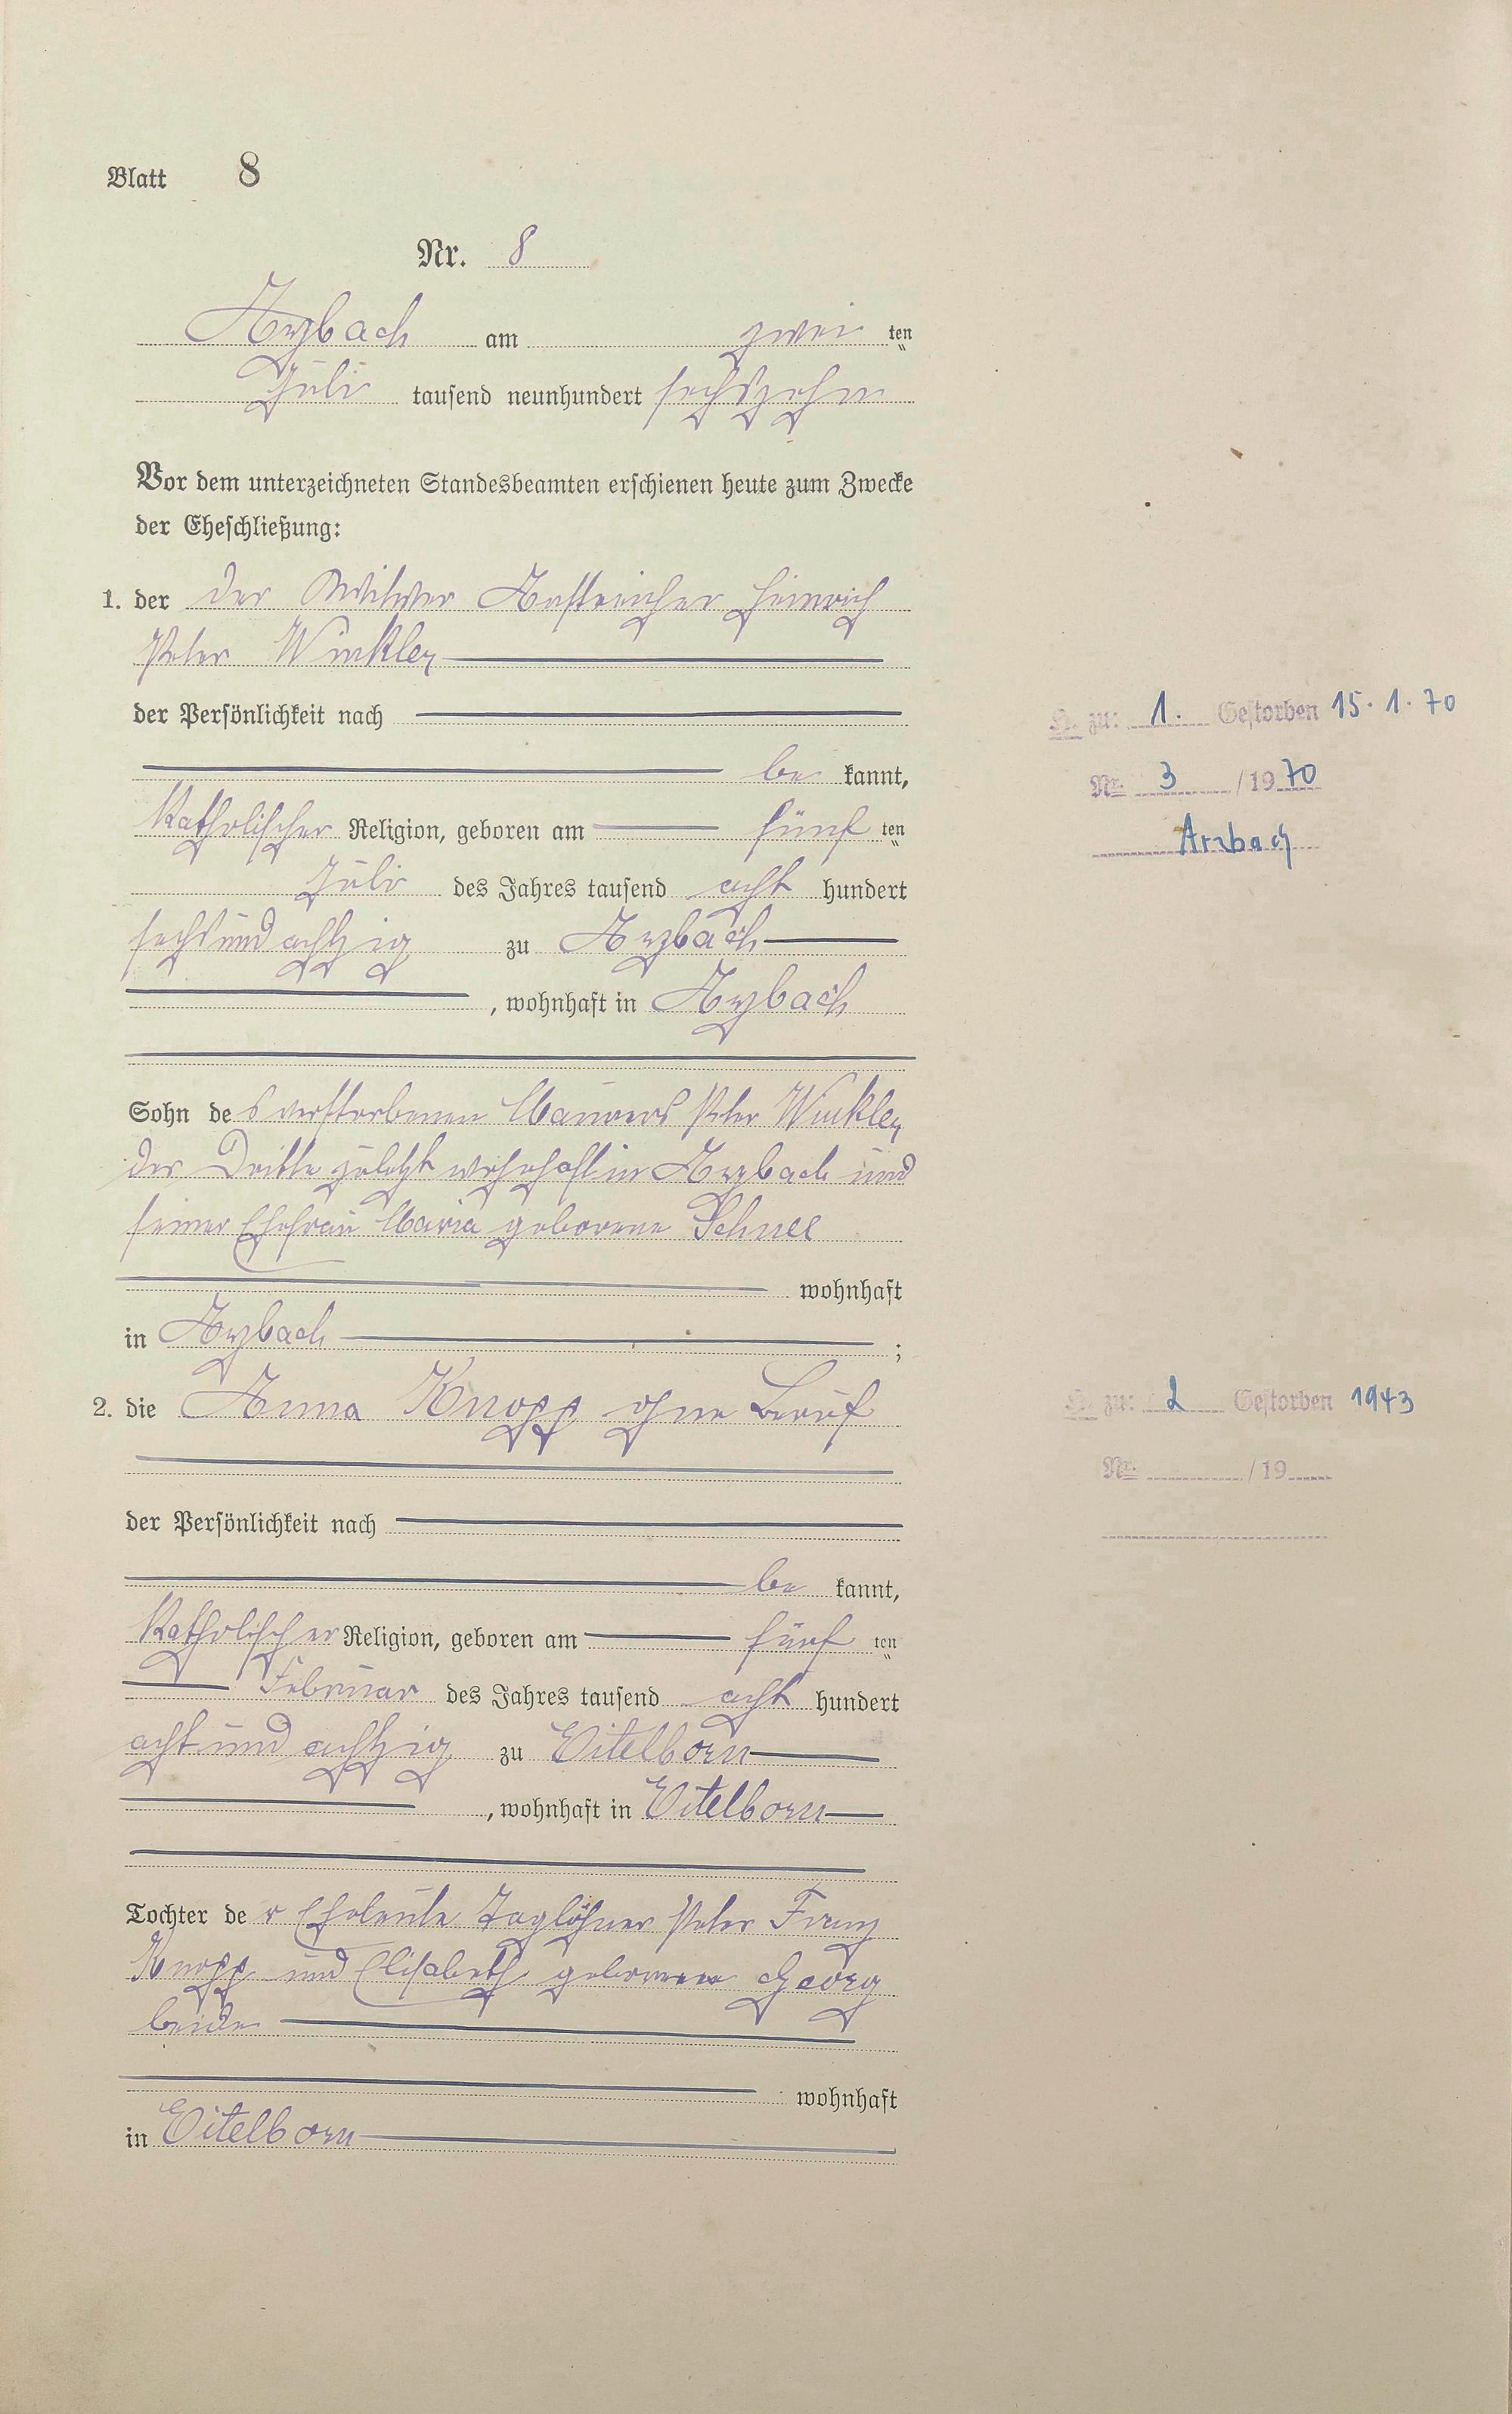 Blatt 8
Nr. 8
Arzbach am zwei ten
Juli tausend neunhundert sechszehn
Vor dem unterzeichneten Standesbeamten erschienen heute zum Zwecke
der Eheschließung:
1. der der Witwer Anstreicher Heinrich
Peter Winkler
der Persönlichkeit nach
be kannt,
Katholischer Religion, geboren am fünf ten
Juli des Jahres tausend acht hundert
sechsundachtzig zu Arzbach
, wohnhaft in Arzbach
Sohn des verstorbenen Maurers Peter Winkler
der Dritte zuletzt wohnhaft in Arzbach und
seiner Ehefrau Maria geborene Schnee
wohnhaft
in Arzbach ;
2. die Anna Knopp ohne Beruf
der Persönlichkeit nach
be kannt,
Katholischer Religion, geboren am fünf ten
Februar des Jahres tausend acht hundert
acht und achtzig zu Eitelborn
, wohnhaft in Eitelborn
Tochter der Eheleute Taglöhner Peter Franz
Knopp und Elisabeth geborene Georg
beide
wohnhaft
in Eitelborn
H. zu: 1. Gestorben 15.1.70
Nr. 3 /1970
Arzbach
H. zu: 2 Gestorben 1943
Nr. /19